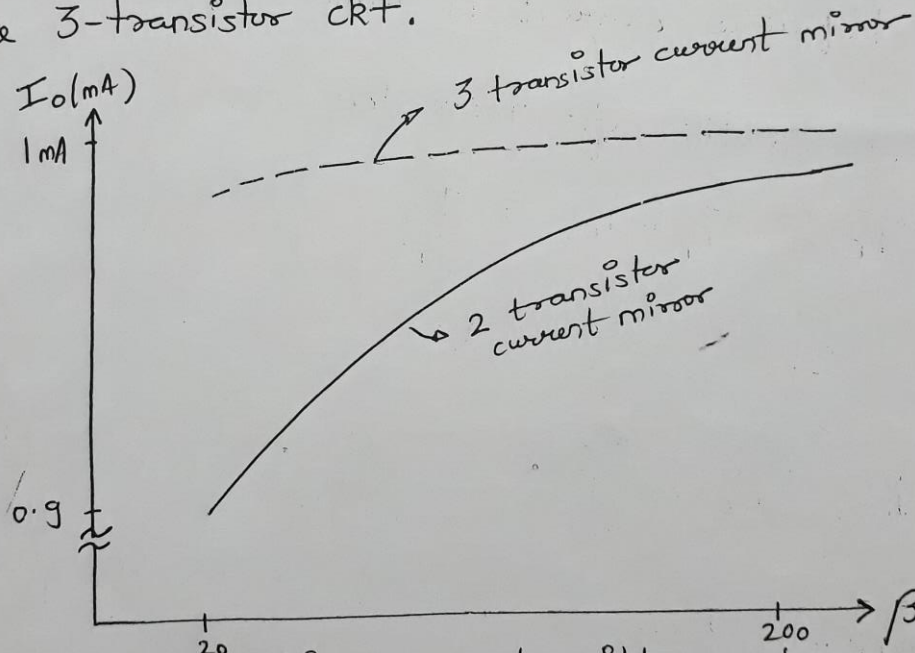 3-transistor ckt.
3 transistor current mirror
Io(mA)
1 mA
2 transistor
current mirror
0.9
20
200
β